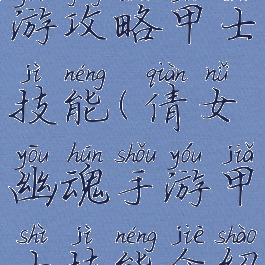 游攻略甲士
jì néng qiàn nǚ
技能(倩女
yōu hún shǒu yóu jiǎ
幽魂手游甲
shì jì néng jiè shào
士技能介绍